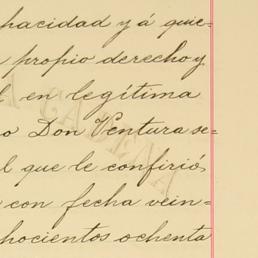 pacidad y á quie=
propio derecho y
l en legítima
o Don Ventura se=
l que le confirió
con fecha vein=
hocientos ochenta